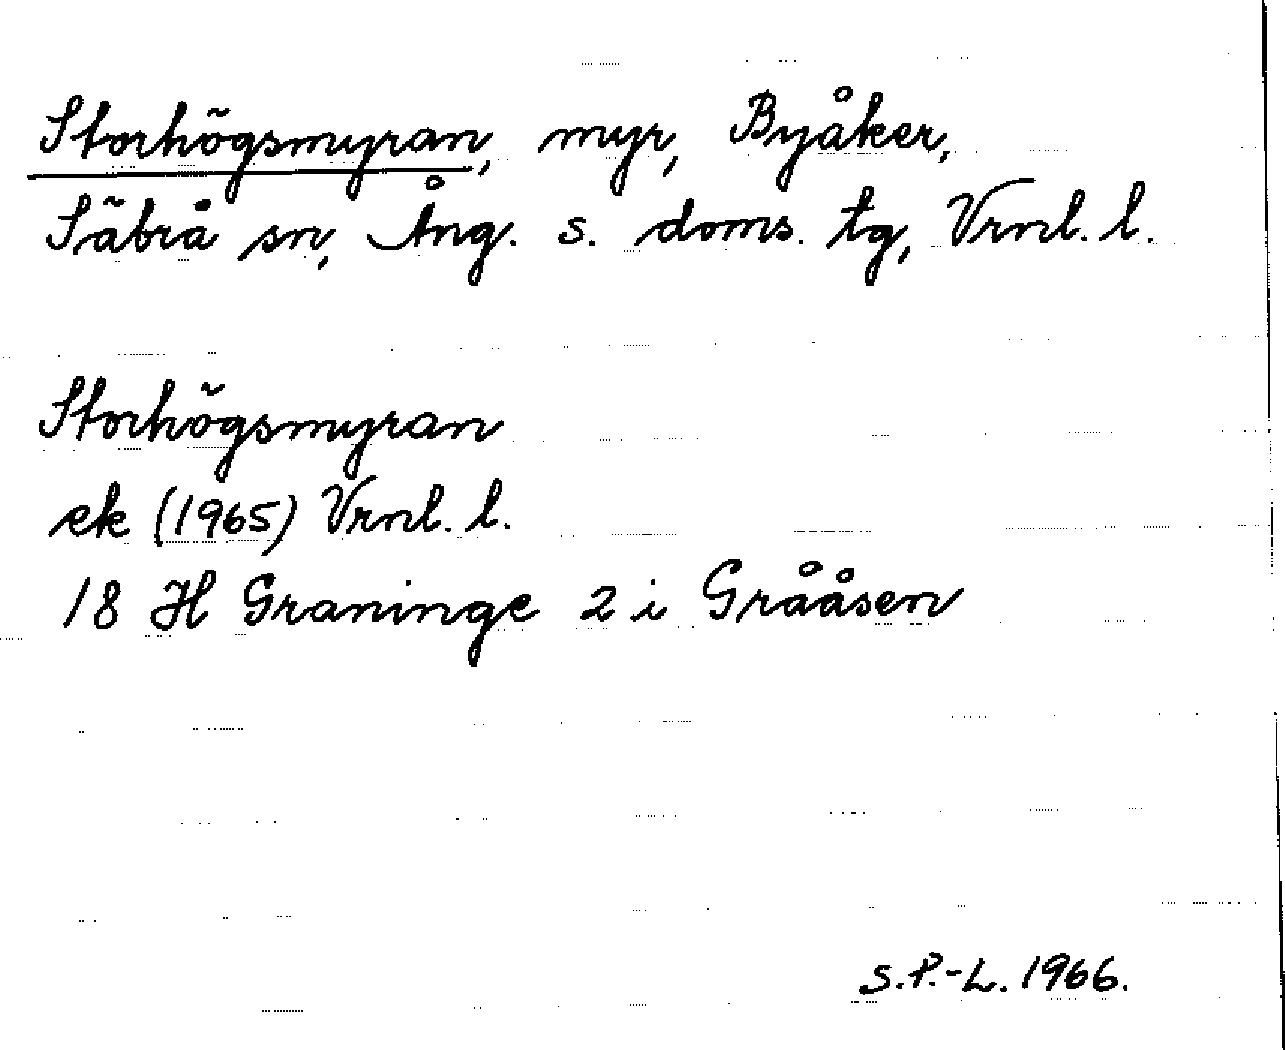 Storhögsmyran, myr, Byåker,
Säbrå sn, Ång. s. doms. tg, Vrnl. l.
Storhögsmyran
ek (1965) Vrnl. l.
18 H Graninge 2 i Grååsen
S.P.-L. 1966.